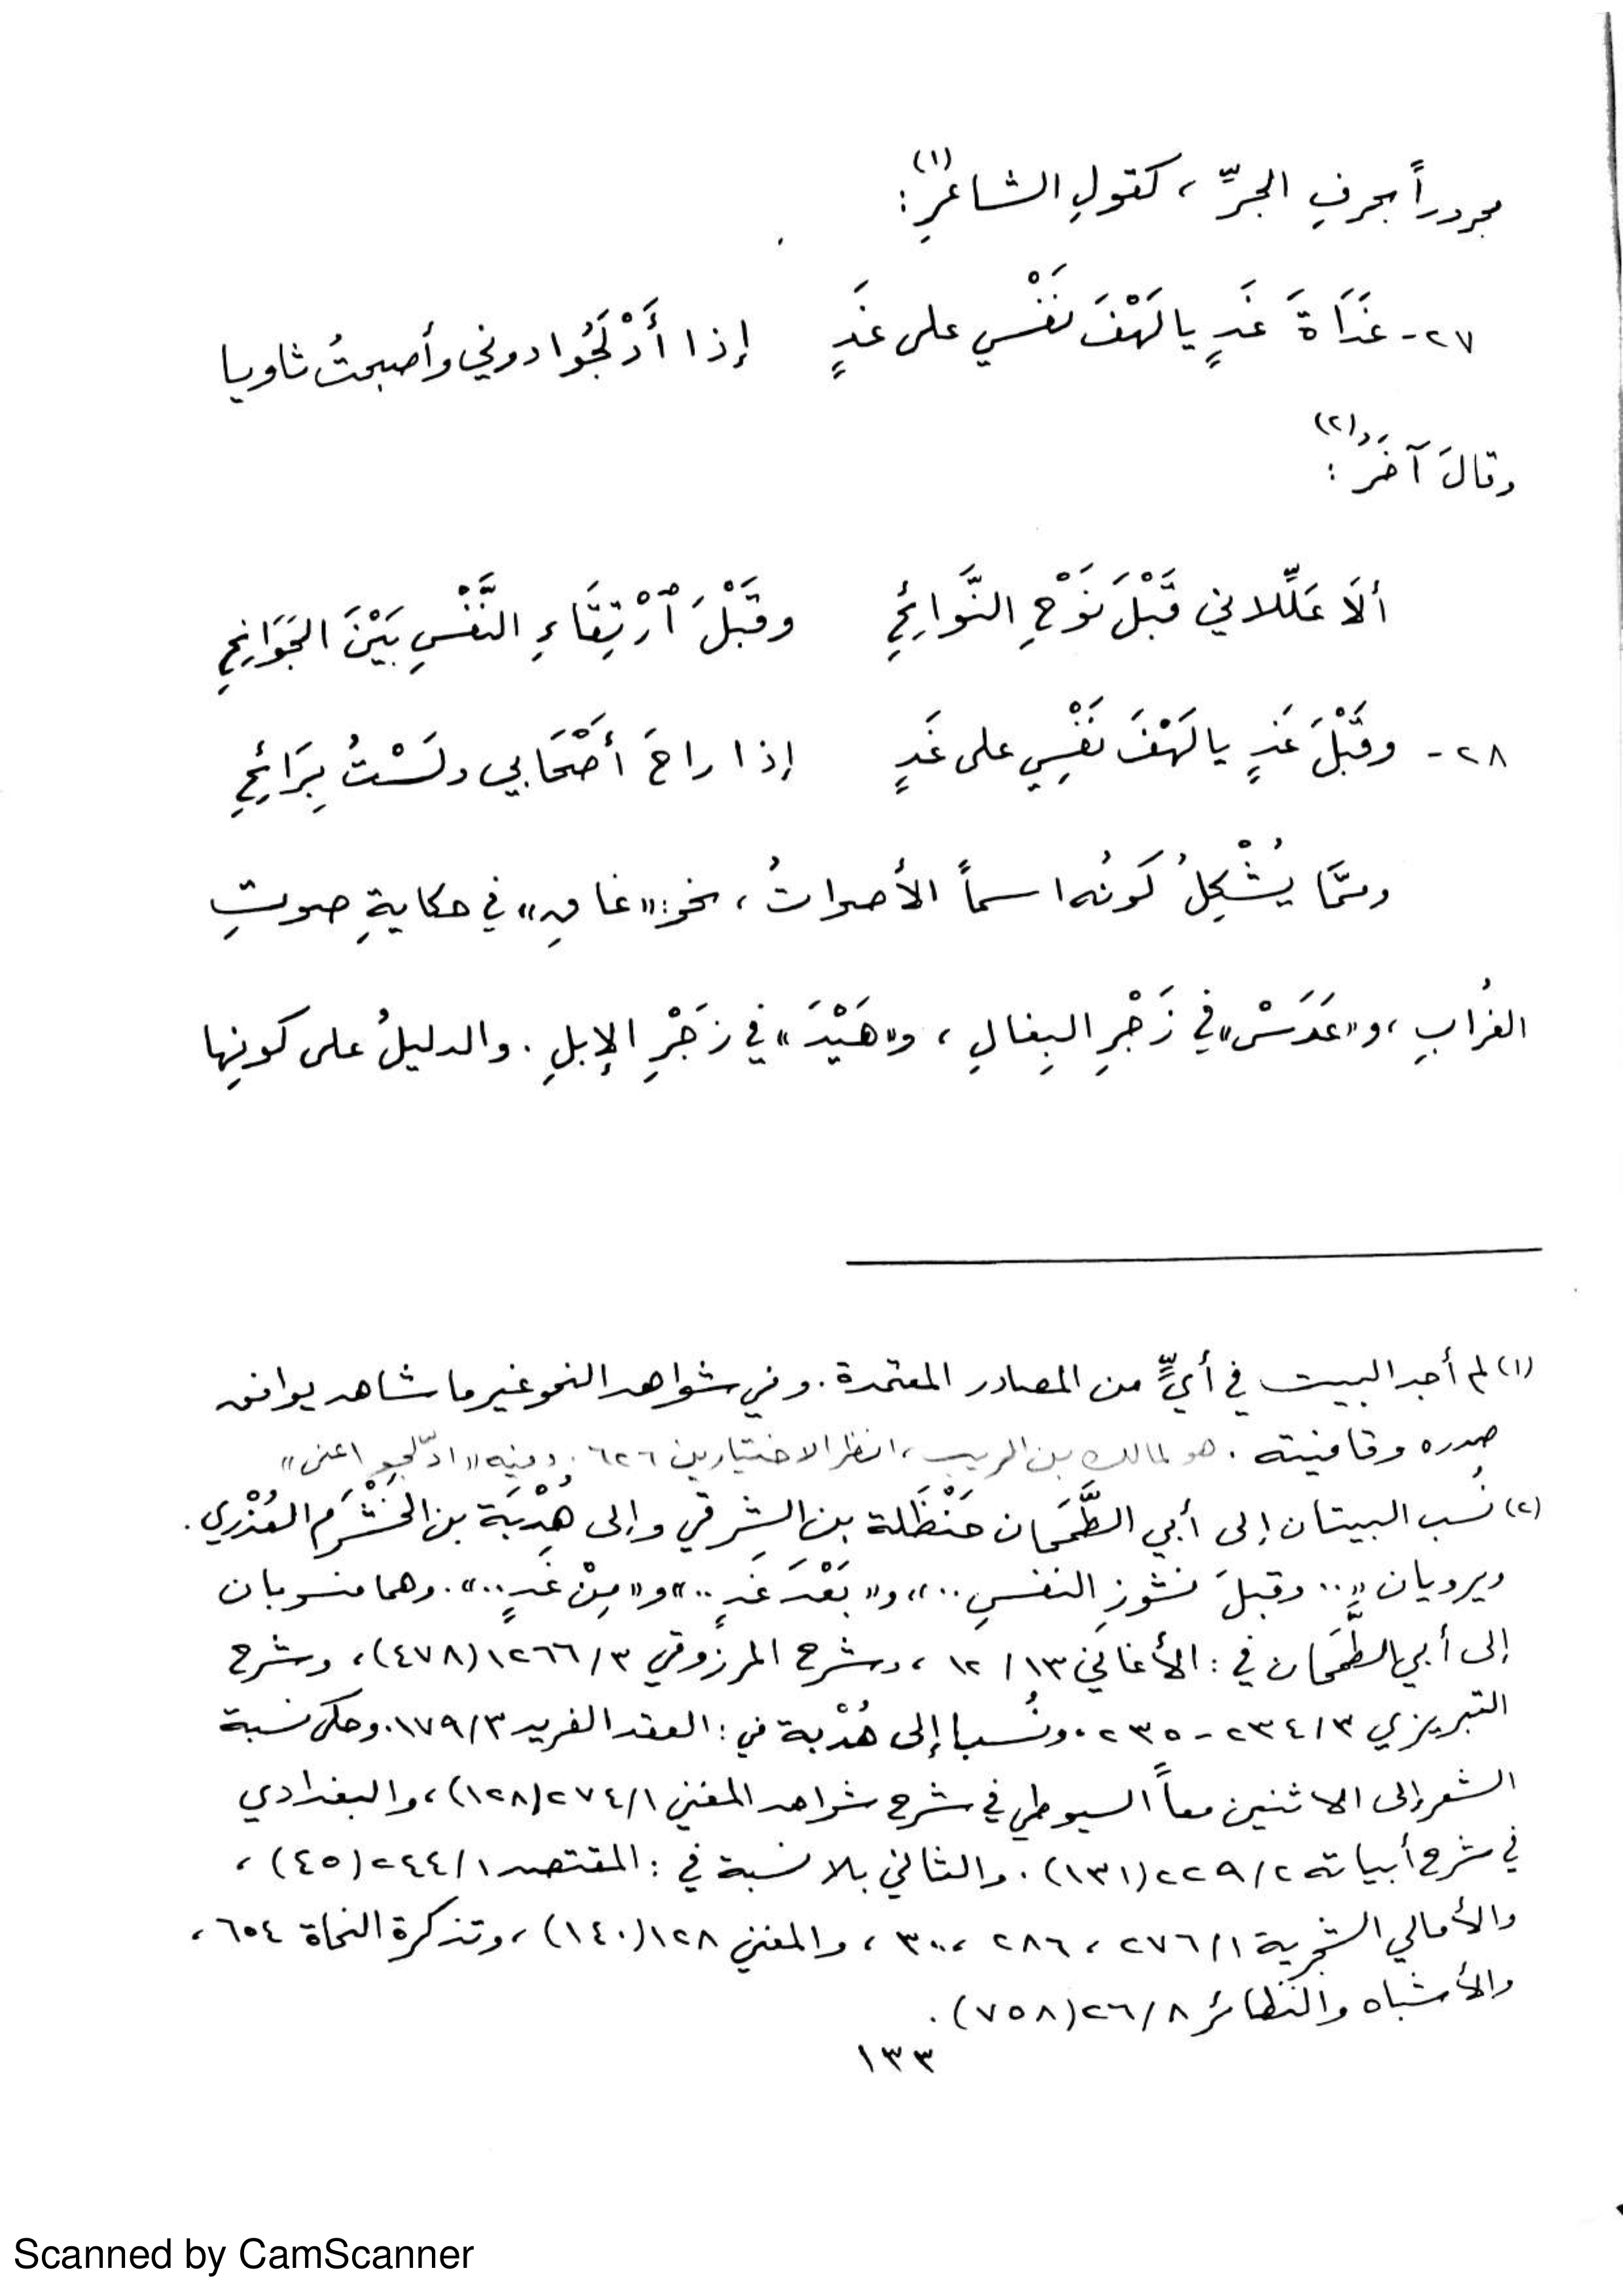 مجروراً بحرفِ الجرِّ ، كقولِ الشاعرِ(١) :
٢٧- غَدَاةَ غَدٍ يا لَهْفَ نَفْسي على غَدٍ إذا أَدْلَجُوا دوني وأصبحتُ ثاويا
وقالَ آخَرُ(٢) :
ألَا عَلِّلاني قَبْلَ نَوْحِ النَّوَائِحِ وقَبْلَ ٱرْتِقَاءِ النَّفْسِ بَيْنَ الجَوَانِحِ
٢٨- وقَبْلَ غَدٍ يا لَهْفَ نَفْسِي على غَدٍ إذا راحَ أصْحَابي ولَسْتُ بِرَائِحِ
وممَّا يُشْكِلُ كَونُه اسماً الأصواتُ ، نحو: «غاقِ» في حكايةِ صوتِ
الغُرابِ ، و«عَدَسْ» في زَجْرِ البِغالِ ، و«هَيْدَ» في زَجْرِ الإبلِ . والدليلُ على كونِها
(١) لم أجد البيت في أيٍّ من المصادر المعتمدة . وفي شواهد النحو غير ما شاهد يوافق
صدره وقافيته . هو لمالك بن الريب ، انظر الاختيارين ٦٢٦ . وفيه «ادّلجوا عني»
(٢) نُسب البيتان إلى أبي الطَّمَحَان حَنْظَلة بن الشرقي وإلى هُدْبَة بن الخَشْرَم العُذْري .
ويرويان «.. وقبلَ نشوزِ النفسِ ..» ، و«بَعْدَ غدٍ ..» و«مِنْ غَدٍ ..» . وهما منسوبان
إلى أبي الطَّمَحَان في : الأغاني ١٣/ ١٢ ، وشرح المرزوقي ٣/ ١٢٦٦ (٤٧٨) ، وشرح
التبريزي ٣/ ٢٣٤ - ٢٣٥ . ونُسبا إلى هُدْبة في : العقد الفريد ٣/ ١٧٩ . وحكى نسبة
الشعر إلى الاثنين معاً السيوطي في شرح شواهد المغني ١/ ٢٧٤ (١٢٨) ، والبغدادي
في شرح أبياته ٢/ ٢٢٩ (١٣١) . والثاني بلا نسبة في : المقتصد ١/ ٢٤٤ (٤٥) ،
والأمالي الشجرية ١/ ٢٧٦ ، ٢٨٦ ، ٣٠٠ ، والمغني ١٢٨ (١٤٠) ، وتذكرة النحاة ٦٥٤ ،
والأشباه والنظائر ٨/ ٢٦ (٧٥٨) .
١٣٣
Scanned by CamScanner